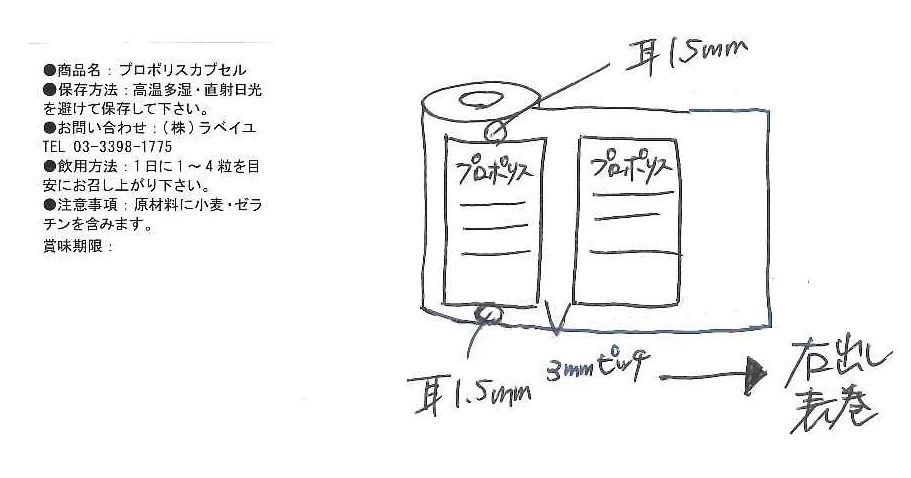 ●商品名：プロポリスカプセル
●保存方法：高温多湿・直射日光
を避けて保存して下さい。
●お問い合わせ：（株）ラベイユ
TEL 03-3398-1775
●飲用方法：１日に１～４粒を目
安にお召し上がり下さい。
●注意事項：原材料に小麦・ゼラ
チンを含みます。
賞味期限：
耳1.5mm
プロポリス
プロポリス
耳1.5mm
3mmピッチ
右出し
表巻